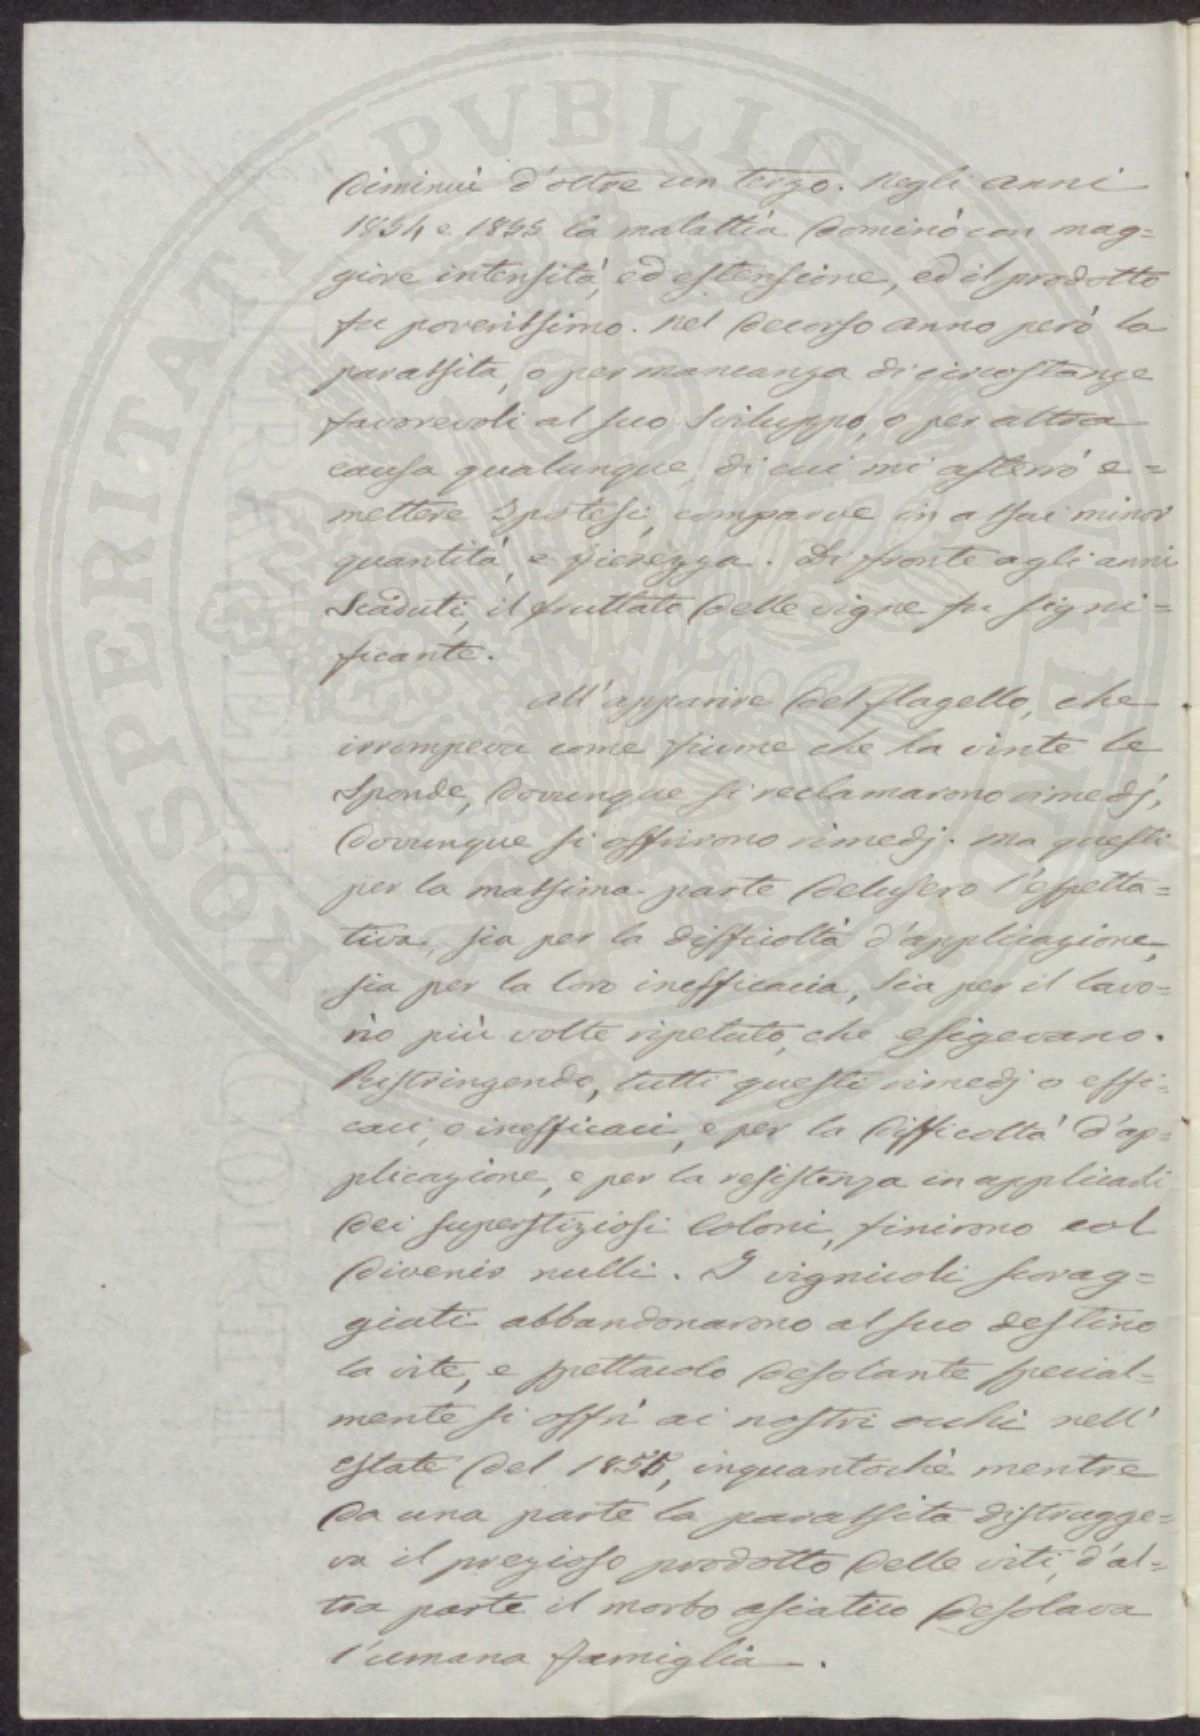 diminuì d'oltre un terzo. Negli anni
1854 e 1855 la malattia dominò con mag=
giore intensità, ed estensione, ed il prodotto
fu poverissimo. Nel decorso anno però la
parassita, o per mancanza di circostanze
favorevoli al suo sviluppo, o per altra
causa qualunque, di cui mi asterrò e=
mettere Ipotesi, comparve in assai minor
quantità, e fierezza. Di fronte agli anni
scaduti, il fruttato delle vigne fu signi=
ficante.
All'apparire del flagello, che
irrompeva come fiume che ha vinte le
sponde, dovunque si reclamarono rimedj,
dovunque si offrirono rimedj. Ma questi
per la massima parte delusero l'espetta=
tiva, sia per la difficoltà d'applicazione,
sia per la loro inefficacia, sia per il lavo=
rio più volte ripetuto, che esigevano.
Restringendo, tutti questi rimedj o effi=
caci, o inefficaci, e per la difficoltà d'ap=
plicazione, e per la resistenza in applicarli
dei superstiziosi Coloni, finirono col
divenir nulli. I vignicoli scorag=
giati abbandonarono al suo destino
la vite, e spettacolo desolante special=
mente si offrì ai nostri occhi nell'
estate del 1855, inquantochè mentre
da una parte la parassita distrugge=
va il prezioso prodotto delle viti, d'al=
tra parte il morbo asiatico desolava
l'umana famiglia.
PROSPERITATI PVBLICAE